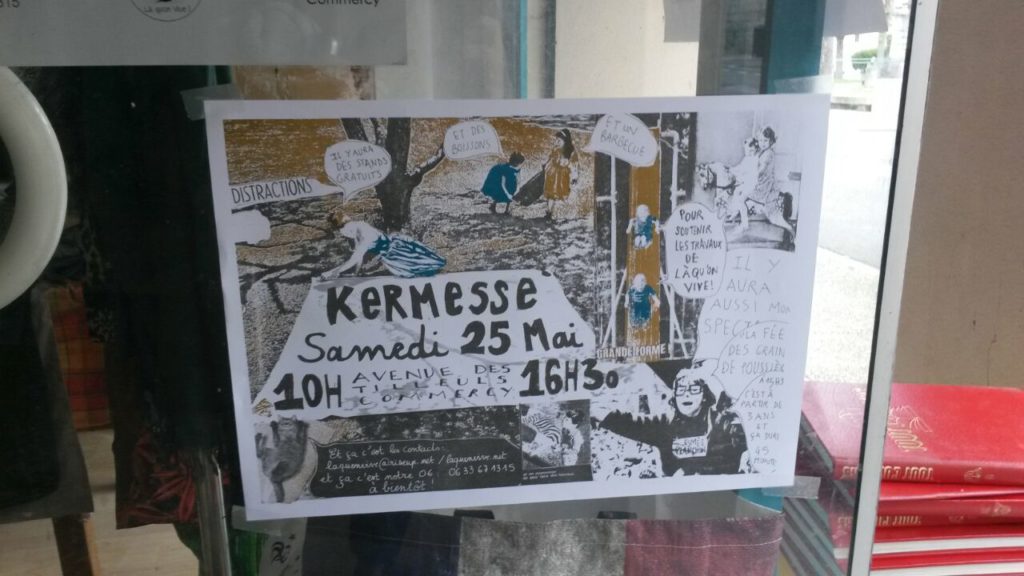 LÀ QU'ON VIVE !
Commercy
IL Y AURA
DES STANDS
GRATUITS
ET DES
BOISSONS
ET UN
BARBECUE
DISTRACTIONS
POUR
SOUTENIR
LES TRAVAUX
DE
LÀQU'ON
VIVE!
KERMESSE
Samedi 25 Mai
10H AVENUE DES TILLEULS COMMERCY 16H30
GRANDE FORME !
IL Y
AURA
AUSSI MON
SPECTACLE
LA FÉE
DES GRAIN
DE POUSSIÈRE
A 15H3
C'EST À
PARTIR DE
3 ANS
ET
ÇA DURE
45
MINUTE
Et ça c'est les contacts:
laquonvive@riseup.net / laquonvive.net
et ça c'est notre 06 06 33 67 13 15
à bientôt !
TOUT